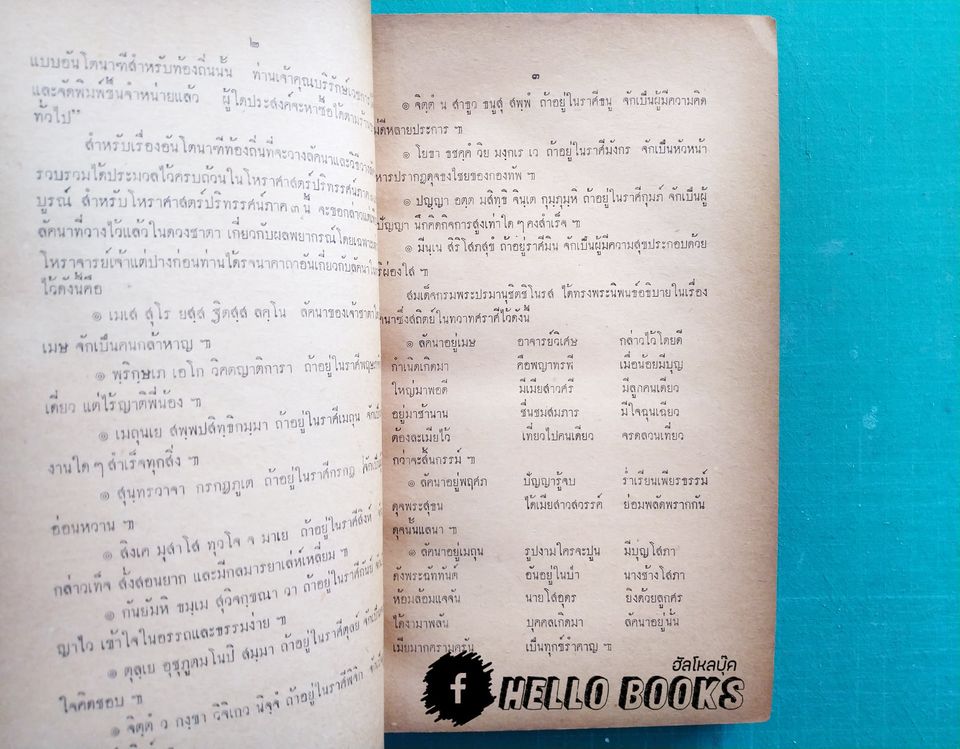 ๒
แบบอันโตนาฑีสำหรับท้องถิ่นนั้น ท่านเจ้าคุณบริรักษ์เวชการ
และจัดพิมพ์ขึ้นจำหน่ายแล้ว ผู้ใดประสงค์จะหาซื้อได้ตามร้าน
ทั่วไป"
สำหรับเรื่องอันโตนาฑีท้องถิ่นที่จะวางลัคนาและวิธีวาง
รวบรวมได้ประมวลไว้ครบถ้วนในโหราศาสตร์ปริทรรศน์ภาค
บูรณ์ สำหรับโหราศาสตร์ปริทรรศน์ภาค ๓ นี้ จะขอกล่าว
ลัคนาที่วางไว้แล้วในดวงชาตา เกี่ยวกับผลพยากรณ์โดยเฉพาะ
โหราจารย์เจ้าแต่ปางก่อนท่านได้รจนาคาถาอันเกี่ยวกับลัคนา
ไว้ดังนี้คือ
๑ เมเส สุโร ยสฺส ฐิตสฺส ลคฺโน ลัคนาของเจ้าชาตา
เมษ จักเป็นคนกล้าหาญ ๚
๑ พฺริกฺษเภ เอโก วิคตญาติการา ถ้าอยู่ในราศีพฤษภ
เดี่ยว แต่ไร้ญาติพี่น้อง ๚
๑ เมถุนเย สพฺพปสิทฺธิกมฺมา ถ้าอยู่ในราศีเมถุน
งานใด ๆ สำเร็จทุกสิ่ง ๚
๑ สุนฺทรวาจา กรกฏภูเต ถ้าอยู่ในราศีกรกฏ
อ่อนหวาน ๚
๑ สิงเค มุสาโส ทุวโจ จ มาเย ถ้าอยู่ในราศีสิงห์
กล่าวเท็จ สั่งสอนยาก และมีกลมารยาเล่ห์เหลี่ยม ๚
๑ กันยัมหิ ขมฺเม สุวิจกฺขณา วา ถ้าอยู่ในราศีกันย์
ญาไว เข้าใจในอรรถและธรรมง่าย ๚
๑ ตุลฺเย อุชุภูตมโนปิ สมฺมา ถ้าอยู่ในราศีตุลย์
ใจคิดชอบ ๚
๑ จิตฺตํ ว กงฺขา วิจิเกว นิจฺจํ ถ้าอยู่ในราศีพิจิก
๓
๑ จิตฺตํ น สาธุว ธนูสุ สพฺพํ ถ้าอยู่ในราศีธนู จักเป็นผู้มีความคิด
ดีหลายประการ ๚
๑ โยธา ธชคฺคํ วิย มงฺกเร เว ถ้าอยู่ในราศีมังกร จักเป็นหัวหน้า
หารปรากฏดุจธงไชยของกองทัพ ๚
๑ ปญฺญา อตฺต มสิทฺธิ จินฺเต กุมฺภุมฺหิ ถ้าอยู่ในราศีกุมภ์ จักเป็นผู้
ปัญญา นึกคิดกิจการสูงเท่าใด ๆ คงสำเร็จ ๚
๑ มีนฺเน สิริโสภสุขํ ถ้าอยู่ราศีมีน จักเป็นผู้มีความสุขประกอบด้วย
ผ่องใส ๚
สมเด็จกรมพระปรมานุชิตชิโนรส ได้ทรงพระนิพนธ์อธิบายในเรื่อง
นาซึ่งสถิตย์ในทวาทศราศีไว้ดังนี้
๑ ลัคนาอยู่เมษ อาจารย์วิเศษ กล่าวไว้โดยดี
กำเนิดเกิดมา คือพญาทรพี เมื่อน้อยมีบุญ
ใหญ่มาพอดี มีเมียสาวศรี มีลูกคนเดียว
อยู่มาช้านาน ชื่นชมสมภาร มีใจฉุนเฉียว
ต้องละเมียไว้ เที่ยวไปคนเดียว จรดลวนเที่ยว
กว่าจะสิ้นกรรม์ ๚
๑ ลัคนาอยู่พฤศภ ปัญญารู้จบ ร่ำเรียนเพียรธรรม์
ดุจพระสุธน ได้เมียสาวสวรรค์ ย่อมพลัดพรากกัน
ดุจนั้นแลนา ๚
๑ ลัคนาอยู่เมถุน รูปงามใครจะปูน มีบุญโสภา
ดังพระฉัททันต์ อันอยู่ในป่า นางช้างโสภา
ห้อมล้อมแจจัน นายโสอุดร ยิงด้วยลูกศร
ได้งามาพลัน บุคคลเกิดมา ลัคนาอยู่นั้น
เมียมากครามครัน เป็นทุกข์รำคาญ ๚
ฮัลโหลบุ๊ค
f HELLO BOOKS